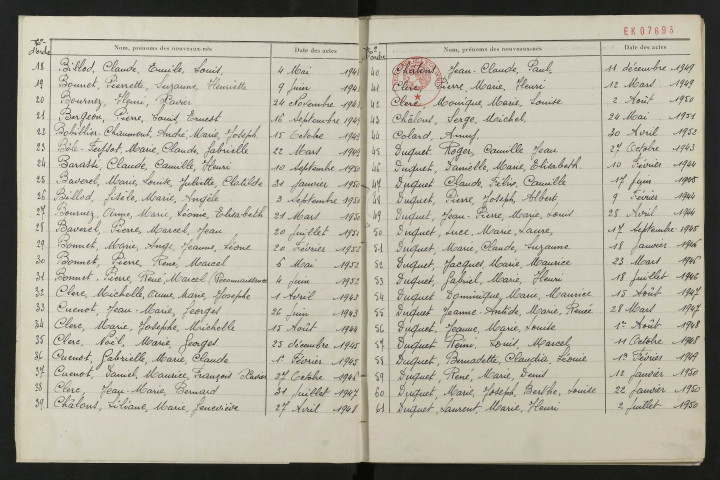 Nos d'ordre | Nom, prénoms des nouveaux-nés | Date des actes
18 Billod, Claude, Emile, Louis, 4 Mai
19 Bonnet, Pierrette, Suzanne, Henriette 9 Juin
20 Bournez, Henri, Xavier 24 Novembre
21 Bergeon, Pierre, Louis, Ernest 16 Septembre
22 Bobillier, Chaumont, André, Marie, Joseph 15 Octobre 1949
23 Marie, Claude, Gabrielle 22 Mars 1949
24 Barassi, Claude, Camille, Henri 10 Septembre 1950
25 Baverel, Marie, Louise, Juliette, Clotilde 21 Janvier 1950
26 Billod, Gisèle, Marie, Angèle 3 Septembre 1950
27 Bournez, Anne, Marie, Léonie, Elisabeth 21 Mars 1950
28 Baverel, Pierre, Marcel, Jean 20 Juillet 1951
29 Bonnet, Marie, Ange, Jeanne, Léone 20 Février 1952
30 Bonnet, Pierre, René, Marcel 6 Mai 1952
31 Bonnet, Pierre, René, Marcel (Reconnaissance) 4 Juin 1952
32 Clerc, Michelle, Anne, Marie, Josephe 1 Avril 1943
33 Cuenot, Jean-Marie, Georges 26 Juin 1943
34 Clerc, Marie, Josephe, Michelle 15 Août 1944
35 Clerc, Noël, Marie, Georges 25 décembre 1945
36 Cuenot, Gabrielle, Marie, Claude 1er Février 1945
37 Cuenot, Daniel, Maurice, François Xavier 27 Octobre 1946
38 Clerc, Jean-Marie, Bernard 31 Juillet 1947
39 Châlons, Liliane, Marie, Geneviève 27 Avril 1948
EK 07693
Nos d'ordre | Nom, prénoms des nouveaux-nés | Date des actes
40 Châlons, Jean-Claude, Paul, 11 décembre 1949
41 Clerc, Pierre, Marie, Henri 12 Mars 1949
42 Clerc, Monique, Marie, Louise 2 Août 1950
43 Châlons, Serge, Michel, 24 Mai 1951
44 Colard, Annys 30 Avril 1952
45 Duquet, Roger, Camille, Jean 27 Octobre 1943
46 Duquet, Danielle, Marie, Elisabeth 10 Février 1944
47 Duquet, Claude, Félix, Camille 17 Juin 1945
48 Duquet, Pierre, Joseph, Albert 9 Février 1944
49 Duquet, Jean-Pierre, Marie, Louis 28 Avril 1944
50 Duquet, Luce, Marie, Laure, 17 Septembre 1945
51 Duquet, Marie, Claude, Suzanne 18 Janvier 1946
52 Duquet, Jacques, Marie, Maurice 23 Mars 1946
53 Duquet, Gabriel, Marie, Henri 18 Juillet 1946
54 Duquet, Dominique, Marie, Maurice 15 Août 1947
55 Duquet, Jeanne-Antide, Marie, Renée 28 Mars 1947
56 Duquet, Jeanne, Marie, Louise 1er Août 1948
57 Duquet, Rémi, Louis, Marcel, 11 Octobre 1948
58 Duquet, Bernadette, Claudia, Léonie 1er Février 1949
59 Duquet, René, Marie, Denis 12 Janvier 1950
60 Duquet, Marie, Joseph, Berthe, Louise 22 Janvier 1950
61 Duquet, Laurent, Marie, Henri 2 Juillet 1950